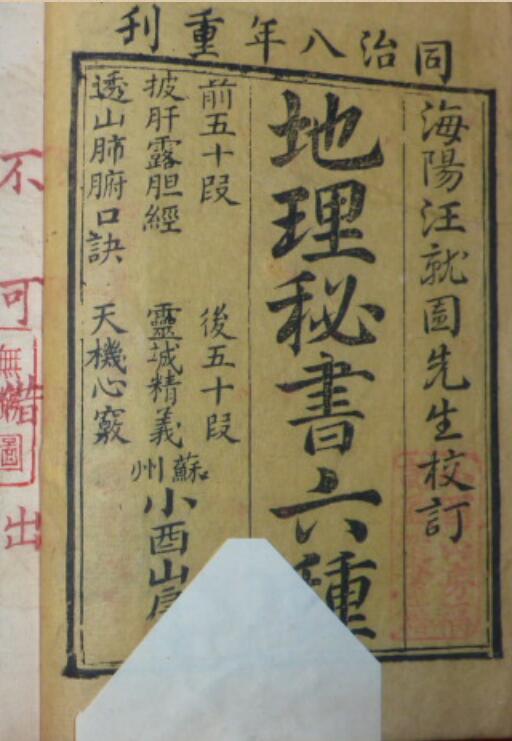 同治八年重刊
海陽汪就圖先生校訂
地理秘書六種
前五十段 後五十段
披肝露胆經 靈誠精義
透山肺腑口訣 天機心竅
蘇州
小酉山房
不可借出